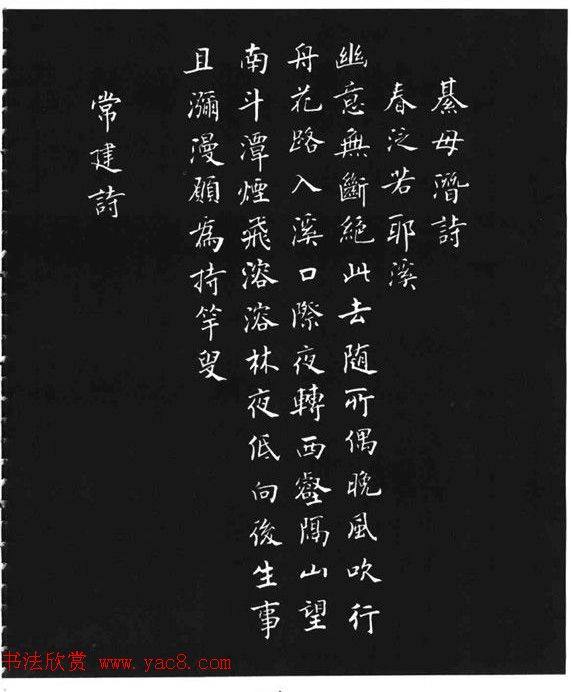 綦毋潛詩
春泛若耶溪
幽意無斷絕此去隨所偶晚風吹行
舟花路入溪口際夜轉西壑隔山望
南斗潭煙飛溶溶林夜低向後生事
且瀰漫願為持竿叟
常建詩
书法欣赏 www.yac8.com